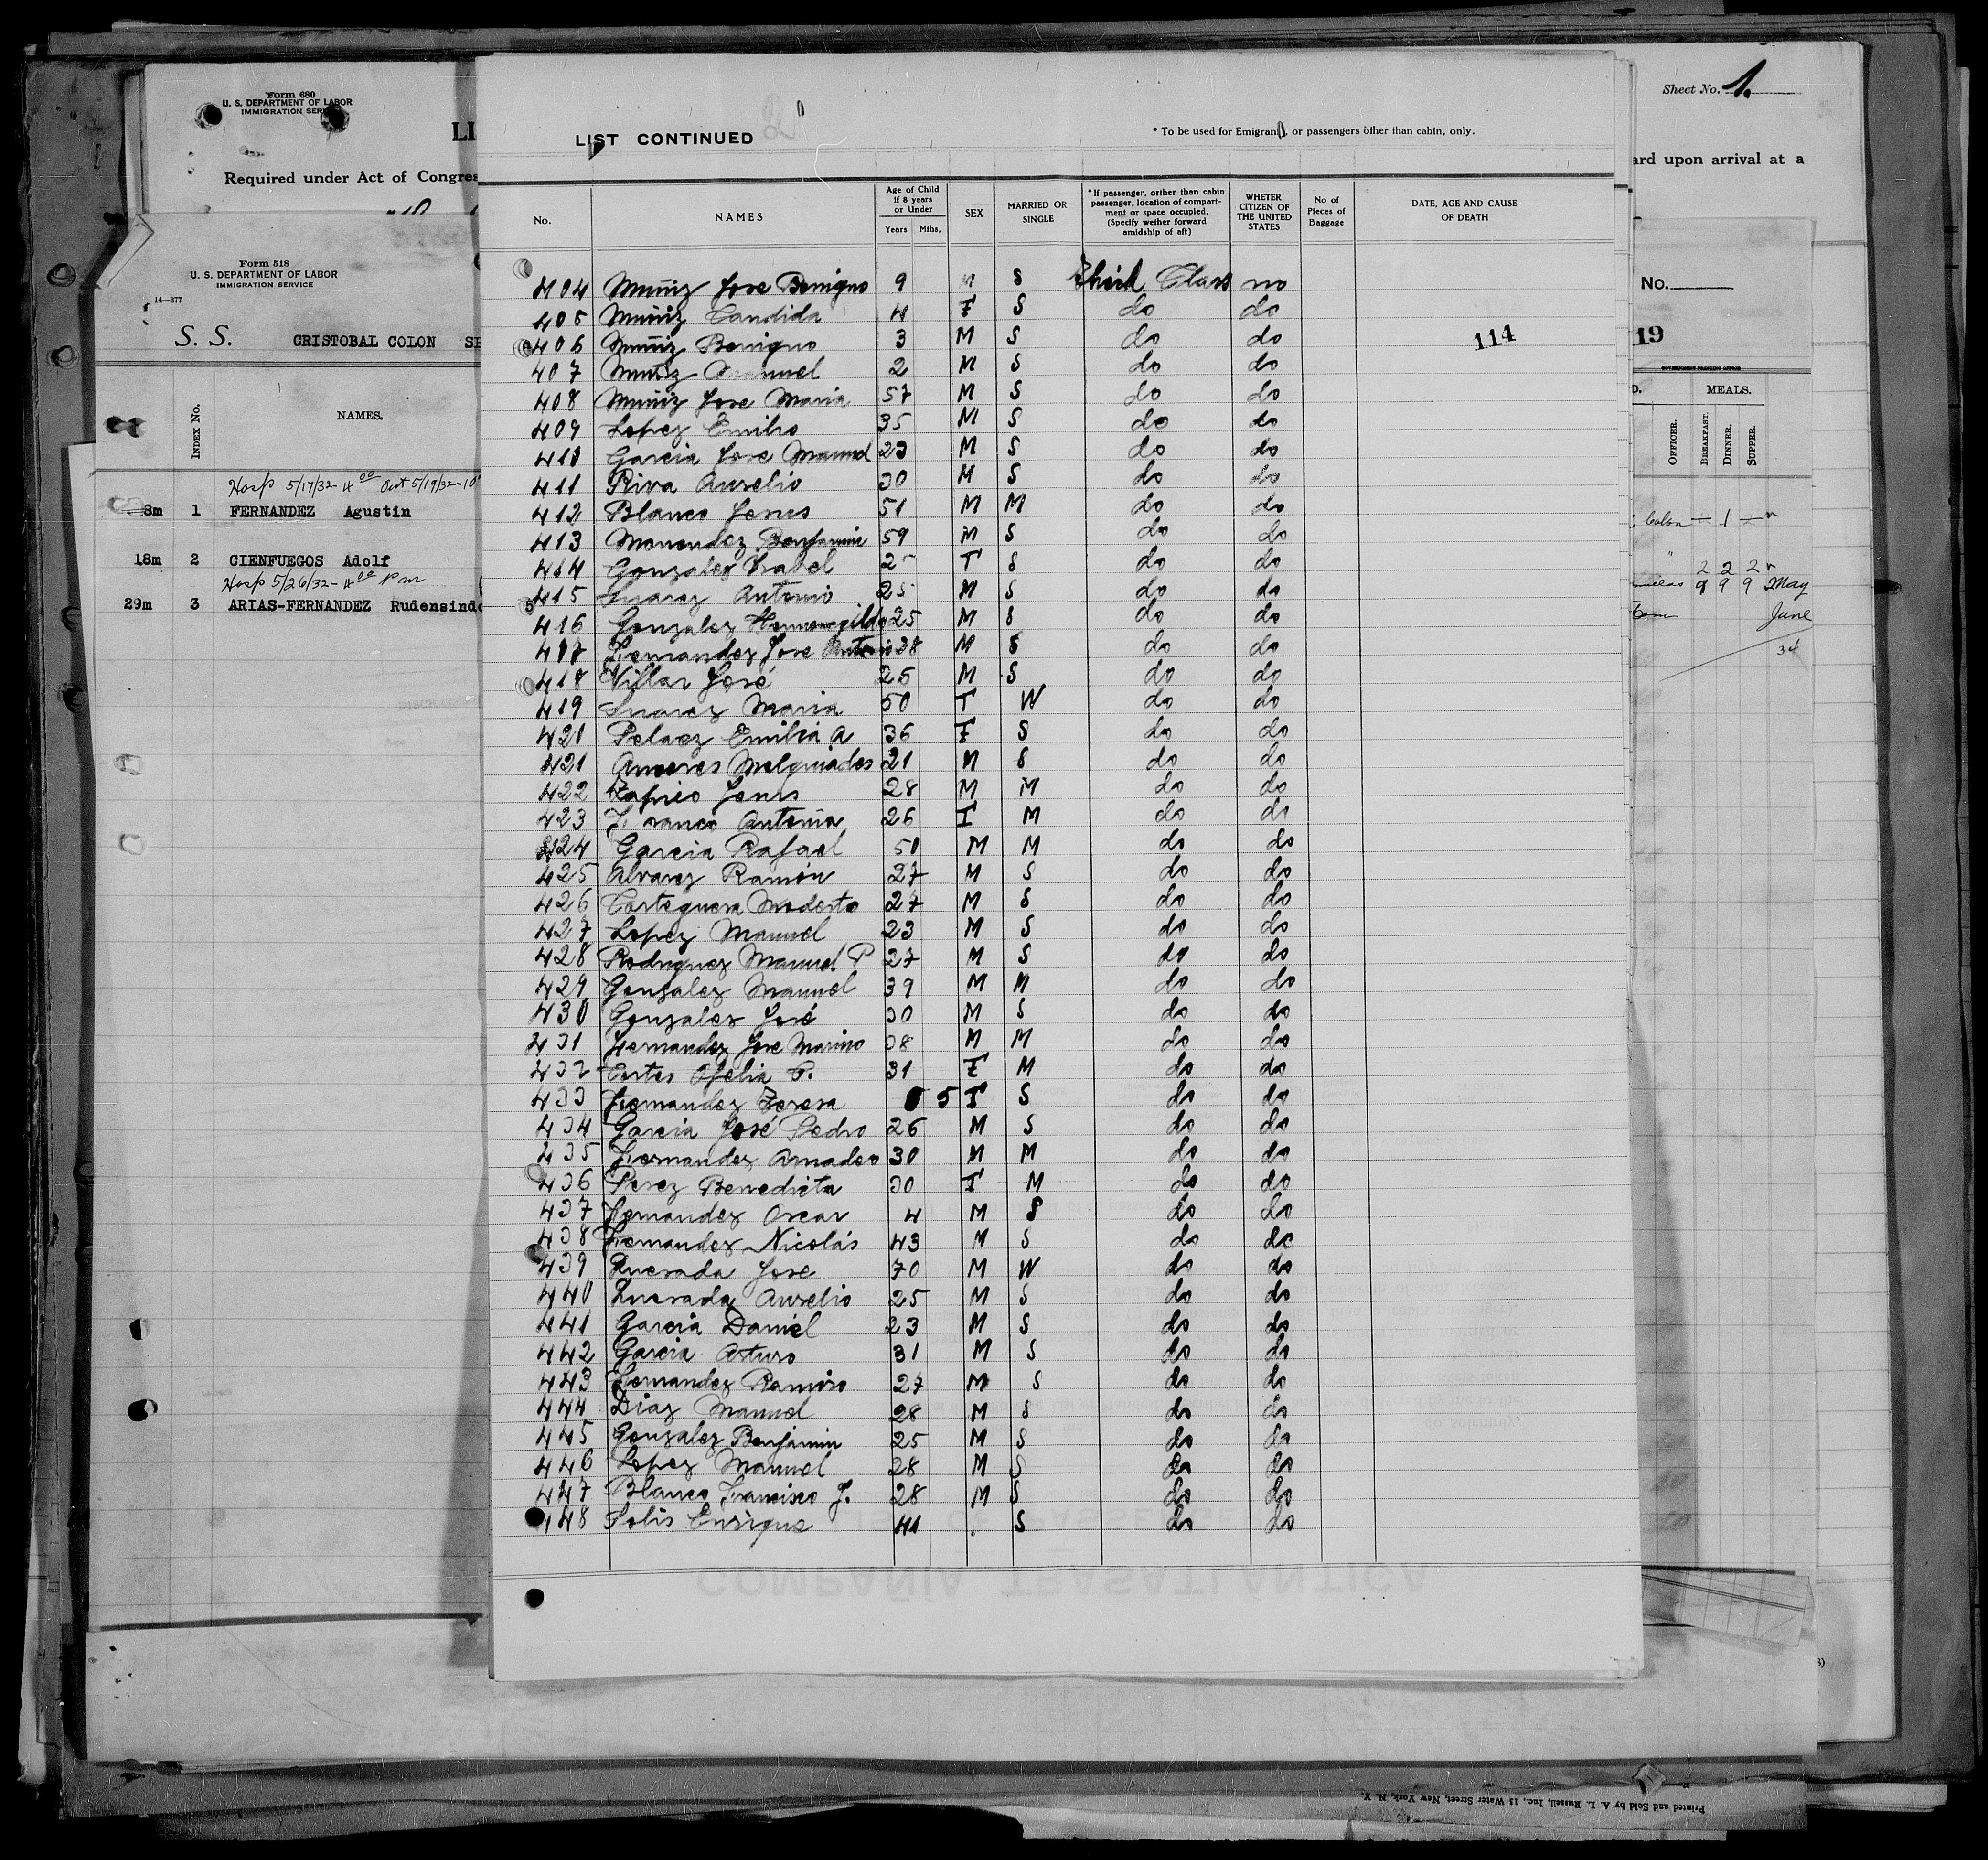 Form 680
U. S. DEPARTMENT OF LABOR
IMMIGRATION SERV
LI
Required under Act of Congres
Sheet No. 1.
ard upon arrival at a
Form 518
U. S. DEPARTMENT OF LABOR
IMMIGRATION SERVICE
14—377
S. S. CRISTOBAL COLON
INDEX No. NAMES.
Hosp 5/17/32- 4 00 Out 5/19/32-10
8m 1 FERNANDEZ Agustin
18m 2 CIENFUEGOS Adolf
Hosp 5/26/32- 4 00 Pm
29m 3 ARIAS-FERNANDEZ Rudensindo
No.
19
GOVERNMENT PRINTING OFFICE
MEALS.
OFFICER. BREAKFAST. DINNER. SUPPER.
Colon — 1 —
2 2 2
9 9 9 May
June
34
LIST CONTINUED 2
* To be used for Emigran or passengers other than cabin, only.
No. NAMES Age of Child if 8 years or Under Years Mths, SEX MARRIED OR SINGLE * If passenger, orither than cabin passenger, location of compartiment or space occupied. (Specify wether forward amidship of aft) WHETER CITIZEN OF THE UNITED STATES No of Pieces of Baggage DATE, AGE AND CAUSE OF DEATH
404 Muñiz Jose Benigno 9 M S Third Class no
405 Muñiz Candida 4 F S do do
406 Muñiz Benigno 3 M S do do 114
407 Muñiz Manuel 2 M S do do
408 Muñiz Jose Maria 57 M S do do
409 Lopez Emilio 35 M S do do
410 Garcia Jose Manuel 23 M S do do
411 Riva Aurelio 30 M S do do
412 Blanco Jesus 51 M M do do
413 Menendez Benjamin 59 M S do do
414 Gonzalez Isabel 25 F S do do
415 Suarez Antonio 25 M S do do
416 Gonzalez Hermenegildo 25 M S do do
417 Fernandez Jose Antonio 38 M S do do
418 Villar José 25 M S do do
419 Suarez Maria 50 F W do do
420 Pelaez Emilia A 36 F S do do
421 Amores Melquiades 21 M S do do
422 Zapico Jesus 28 M M do do
423 Franco Antonia 26 F M do do
424 Garcia Rafael 50 M M do do
425 Alvarez Ramón 27 M S do do
426 Carteguera Modesto 27 M S do do
427 Lopez Manuel 23 M S do do
428 Rodriguez Manuel P 27 M S do do
429 Gonzalez Manuel 39 M M do do
430 Gonzalez José 30 M S do do
431 Fernandez Jose Marino 38 M M do do
432 Cortes Ofelia P. 31 F M do do
433 Fernandez Teresa 5 F S do do
434 Garcia José Pedro 26 M S do do
435 Fernandez Amadeo 30 M M do do
436 Perez Benedicta 30 F M do do
437 Fernandez Oscar 4 M S do do
438 Fernandez Nicolás 43 M S do do
439 Quesada Jose 70 M W do do
440 Quesada Aurelio 25 M S do do
441 Garcia Daniel 23 M S do do
442 Garcia Arturo 31 M S do do
443 Fernandez Ramiro 27 M S do do
444 Diaz Manuel 28 M S do do
445 Gonzalez Benjamin 25 M S do do
446 Lopez Manuel 28 M S do do
447 Blanco Francisco J. 28 M S do do
448 Solis Enrique 41 S do do
COMPAÑIA TRASATLANTICA
Printed and Sold by A. L. Russell, Inc., 13 Water Street, New York, N. Y.